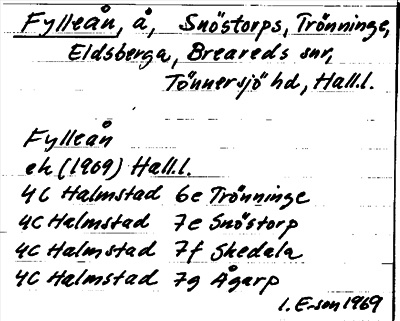 Fylleån, å, Snöstorps, Trönninge,
Eldsberga, Breareds snr,
Tönnersjö hd, Hall.l.
Fylleån
ek (1969) Hall.l.
4C Halmstad 6e Trönninge
4C Halmstad 7e Snöstorp
4C Halmstad 7f Skedala
4C Halmstad 7g Ågarp
l. E-son 1969